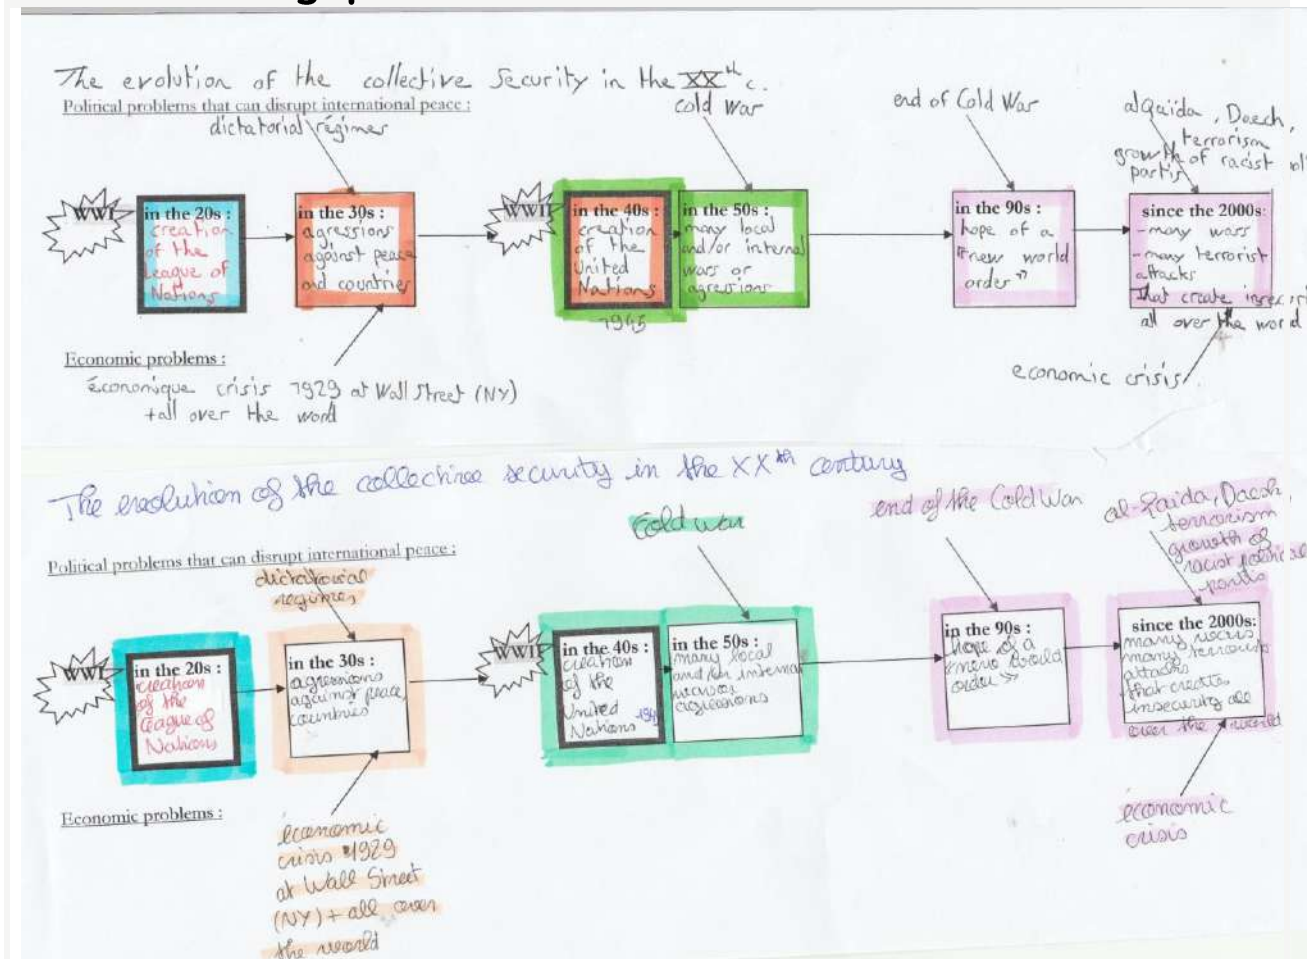 The evolution of the collective security in the XXth c.
Political problems that can disrupt international peace :
dictatorial régimes
cold War
end of Cold War
alQaïda, Daech,
terrorism
growth of racist
partis
WWI
in the 20s :
creation
of the
League of
Nations
in the 30s :
agressions
against peace
and countries
WWII
in the 40s :
creation
of the
United
Nations
1945
in the 50s :
many local
and/or internal
wars or
agressions
in the 90s :
hope of a
"new world
order"
since the 2000s:
-many wars
-many terrorist
attacks
that create
all over the world
Economic problems :
économique crisis 1929 at Wall Street (NY)
+all over the world
economic crisis
The evolution of the collective security in the XXth century
Political problems that can disrupt international peace :
dictatorial
regimes
Cold war
end of the Cold War
al-Qaida, Daesh,
terrorism
growth of
racist political
partis
WWI
in the 20s :
creation
of the
League of
Nations
in the 30s :
agressions
against peace,
countries
WWII
in the 40s :
creation
of the
United
Nations
in the 50s :
many local
and/or internal
wars or
agressions
in the 90s :
hope of a
new world
order »
since the 2000s:
many wars
many terrorist
attacks
that create
insecurity all
over the world
Economic problems :
économic
crisis 1929
at Wall Street
(NY) + all over
the world
économic
crisis